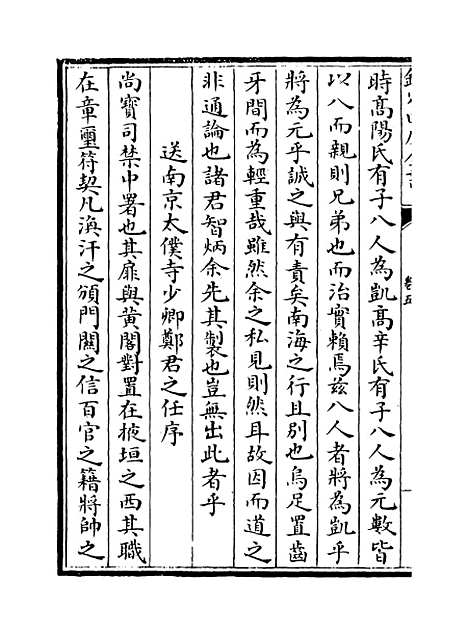 時髙陽氏有子八人為凱髙辛氏有子八人為元數皆
以八而親則兄弟也而治實賴焉兹八人者將為凱乎
將為元乎誠之與有責矣南海之行且別也烏足置齒
牙間而為輕重哉雖然余之私見則然耳故因而道之
非通論也諸君智炳余先其製也豈無出此者乎
送南京太僕寺少卿鄭君之任序
尚寳司禁中署也其扉與黄閣對置在掖垣之西其職
在章璽符契凡渙汗之頒門闗之信百官之籍將帥之